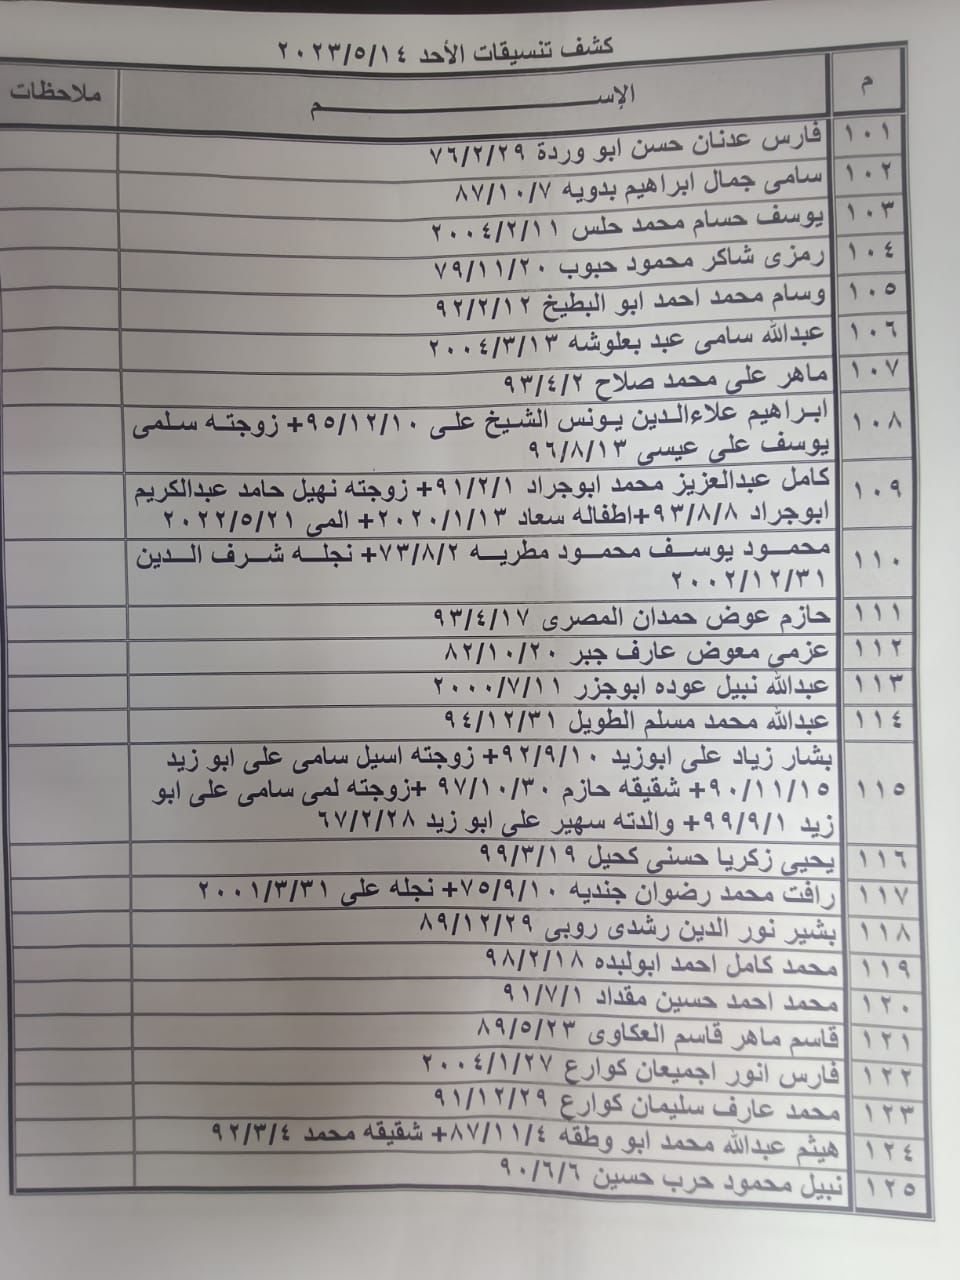 كشف تنسيقات الأحد ٢٠٢٣/٥/١٤
م الإســـــــــــم ملاحظات
١٠١ فارس عدنان حسن ابو وردة ٧٦/٢/٢٩
١٠٢ سامى جمال ابراهيم بدويه ٨٧/١٠/٧
١٠٣ يوسف حسام محمد حلس ٢٠٠٤/٢/١١
١٠٤ رمزى شاكر محمود حبوب ٧٩/١١/٢٠
١٠٥ وسام محمد احمد ابو البطيخ ٩٢/٢/١٢
١٠٦ عبدالله سامى عبد بعلوشه ٢٠٠٤/٣/١٣
١٠٧ ماهر على محمد صلاح ٩٣/٤/٢
١٠٨ ابراهيم علاءالدين يونس الشيخ على ٩٥/١٢/١٠+ زوجته سلمى
يوسف على عيسى ٩٦/٨/١٣
١٠٩ كامل عبدالعزيز محمد ابوجراد ٩١/٢/١+ زوجته نهيل حامد عبدالكريم
ابوجراد ٩٣/٨/٨+اطفاله سعاد ٢٠٢٠/١/١٣+ المى ٢٠٢٢/٥/٢١
١١٠ محمود يوسف محمود مطريه ٧٣/٨/٢+ نجله شرف الدين
٢٠٠٢/١٢/٣١
١١١ حازم عوض حمدان المصرى ٩٣/٤/١٧
١١٢ عزمى معوض عارف جبر ٨٢/١٠/٢٠
١١٣ عبدالله نبيل عوده ابوجزر ٢٠٠٠/٧/١١
١١٤ عبدالله محمد مسلم الطويل ٩٤/١٢/٣١
١١٥ بشار زياد على ابوزيد ٩٢/٩/١٠+ زوجته اسيل سامى على ابو زيد
٩٠/١١/١٥+ شقيقه حازم ٩٧/١٠/٣٠ +زوجته لمى سامى على ابو
زيد ٩٩/٩/١+ والدته سهير على ابو زيد ٦٧/٢/٢٨
١١٦ يحيى زكريا حسنى كحيل ٩٩/٣/١٩
١١٧ رافت محمد رضوان جنديه ٧٥/٩/١٠+ نجله على ٢٠٠١/٣/٣١
١١٨ بشير نور الدين رشدى روبى ٨٩/١٢/٢٩
١١٩ محمد كامل احمد ابولبده ٩٨/٢/١٨
١٢٠ محمد احمد حسين مقداد ٩١/٧/١
١٢١ قاسم ماهر قاسم العكاوى ٨٩/٥/٢٣
١٢٢ فارس انور اجميعان كوارع ٢٠٠٤/١/٢٧
١٢٣ محمد عارف سليمان كوارع ٩١/١٢/٢٩
١٢٤ هيثم عبدالله محمد ابو وطقه ٨٧/١١/٤+ شقيقه محمد ٩٢/٣/٤
١٢٥ نبيل محمود حرب حسين ٩٠/٦/٦